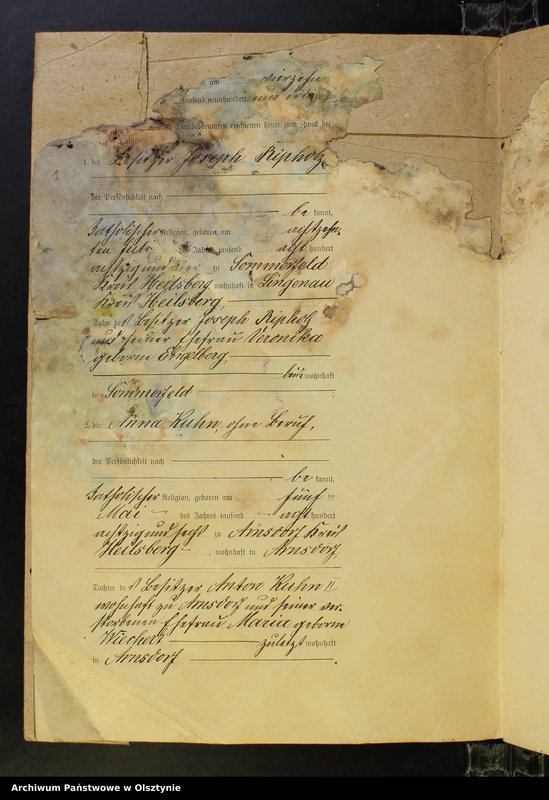 am vierzehn
tausend neunhundert und drei
Standesbeamten erschienen heute zum Zweck der
1
1. der Besitzer Joseph Ripholz
der Persönlichkeit nach
be kannt,
katholischer Religion, geboren am achtzehn-
ten Juli des Jahres tausend acht hundert
achtzig und vier zu Sommerfeld
Kreis Heilsberg wohnhaft in Lingenau
Kreis Heilsberg
Sohn des Besitzer Joseph Ripholz
und seiner Ehefrau Veronika
geborne Engelberg,
beide wohnhaft
in Sommerfeld
2. die Anna Kuhn, ohne Beruf,
der Persönlichkeit nach
be kannt,
katholischer Religion, geboren am fünf ten
Mai des Jahres tausend acht hundert
achtzig und sechs zu Arnsdorf Kreis
Heilsberg, wohnhaft in Arnsdorf
Tochter des Besitzer Anton Kuhn II
wohnhaft zu Arnsdorf und seiner ver-
storbenen Ehefrau Maria geborne
Wiechert zuletzt wohnhaft
in Arnsdorf.
Archiwum Państwowe w Olsztynie